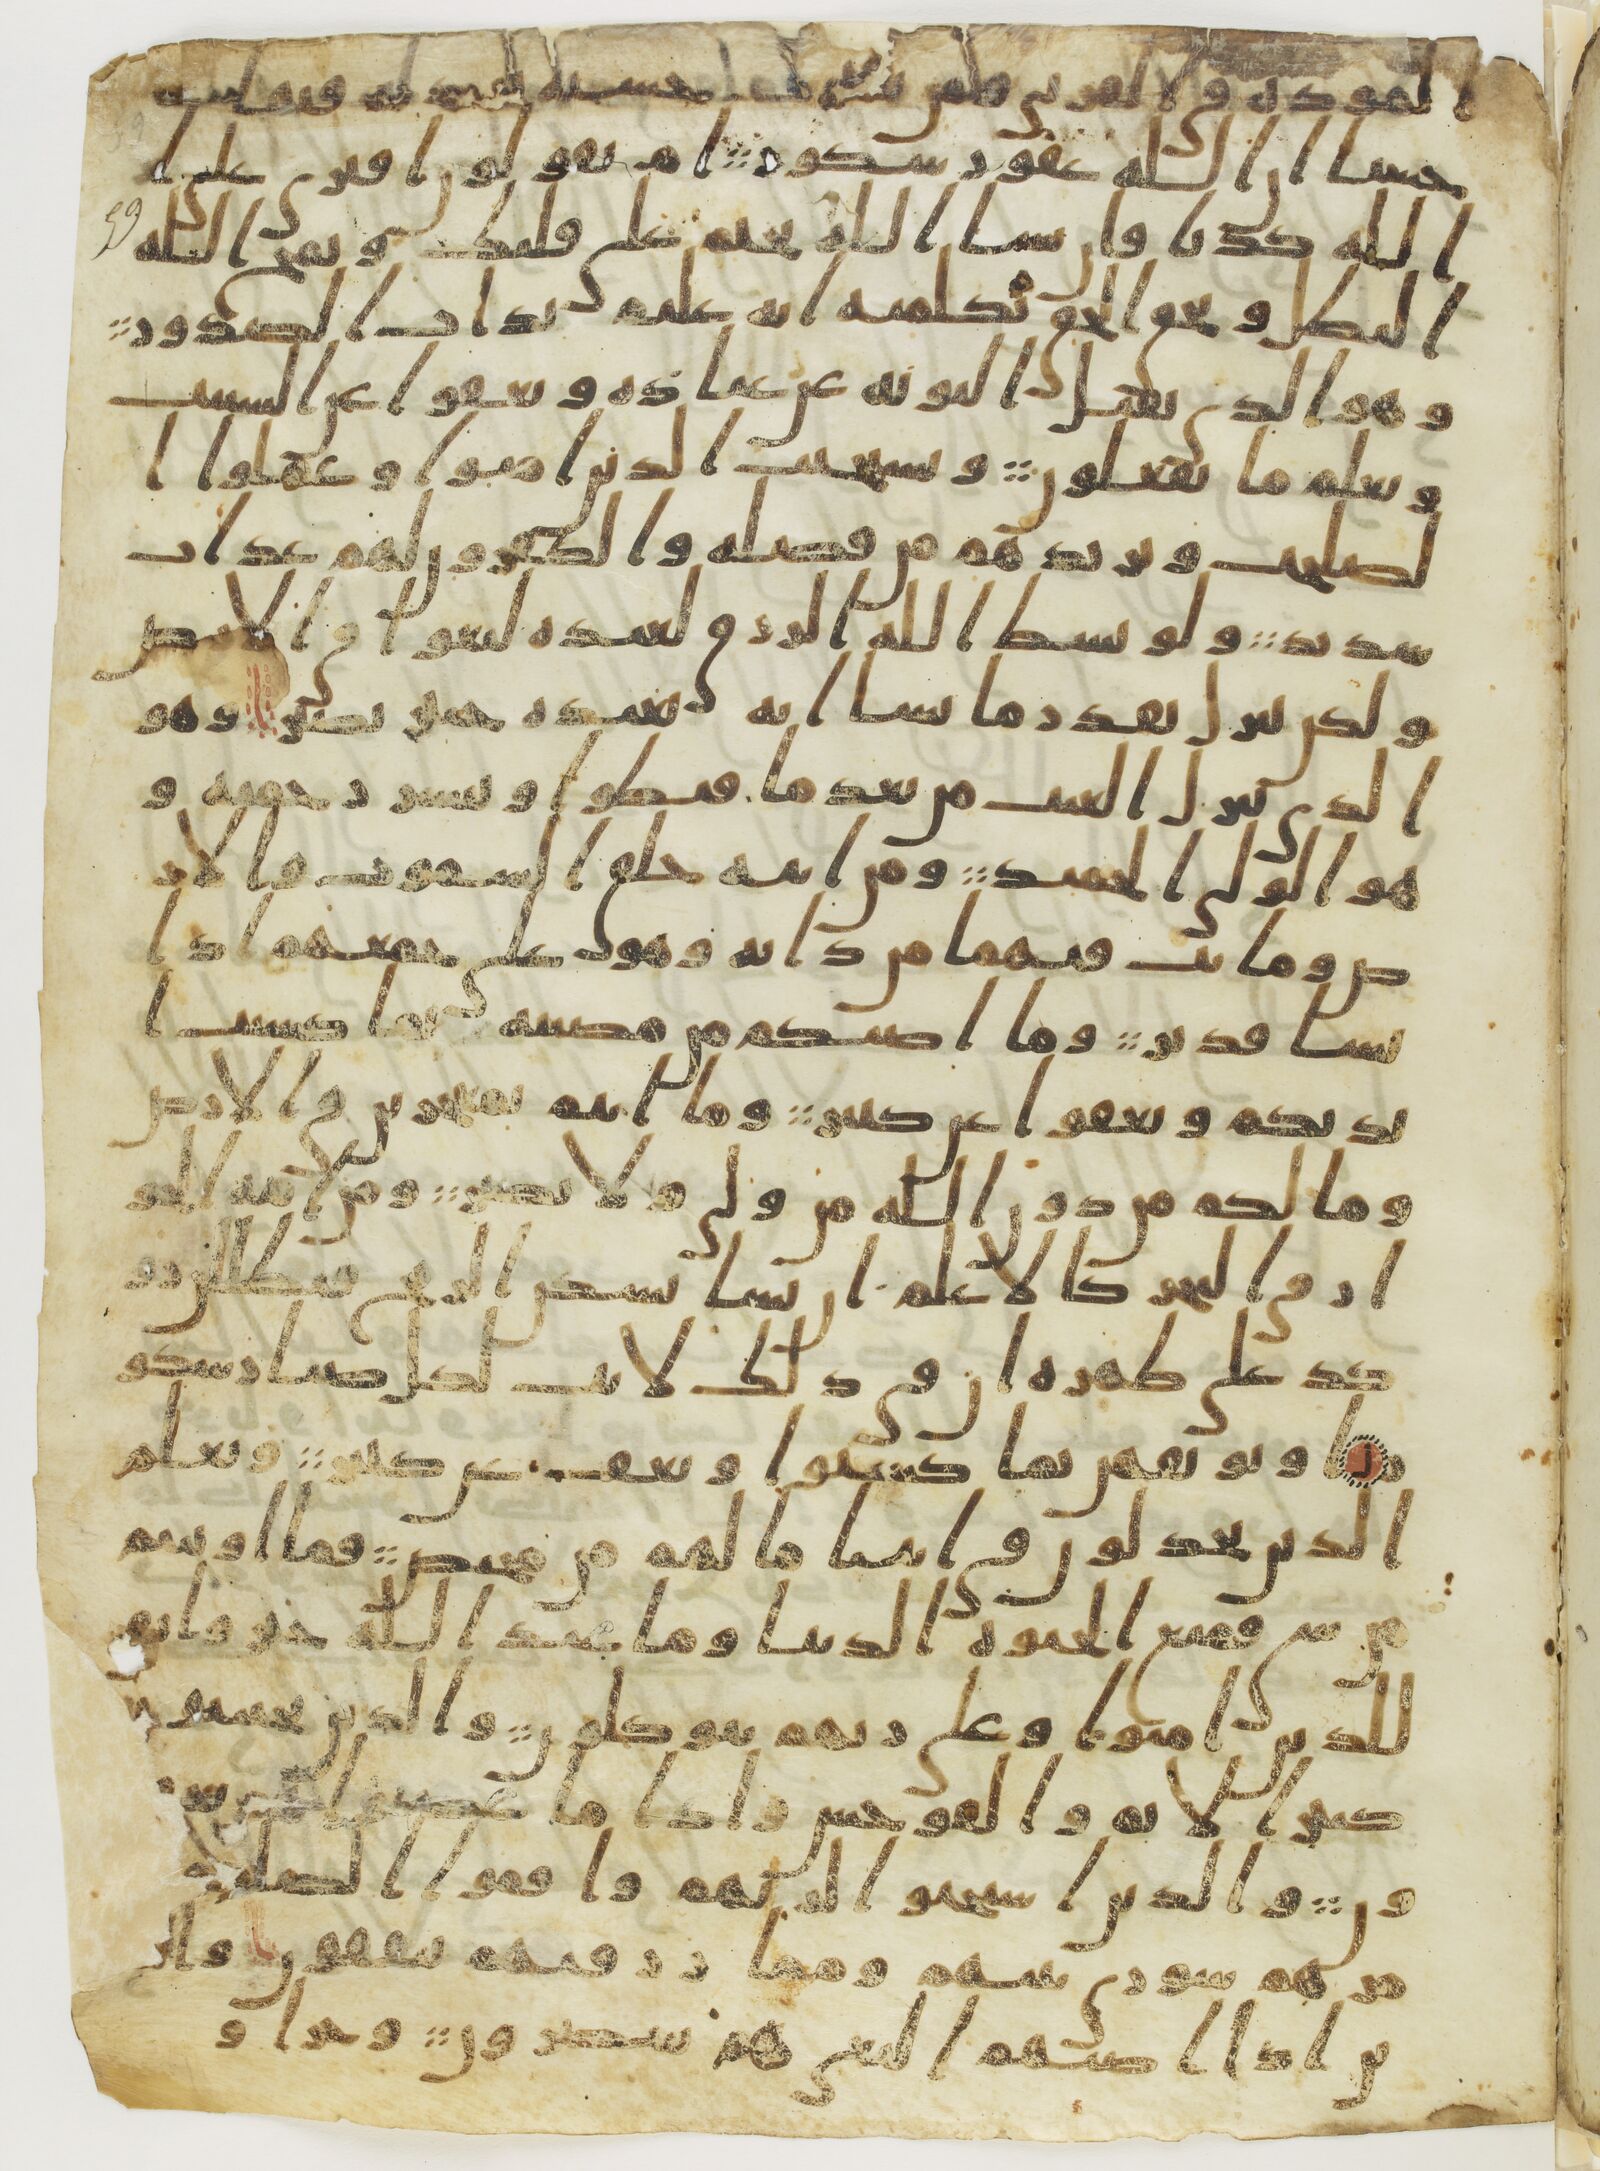 المودة في القربى ومن يقترف حسنة نزد له فيها
حسنا ان الله غفور شكور ∷ ام يقولون افترى على ا
الله كذبا فان يشا الله يختم على قلبك ويمح الله
البطل ويحق الحق بكلمته انه عليم بذات الصدور ∷
وهو الذي يقبل التوبة عن عباده ويعفوا عن السيت
ويعلم ما تفعلون ∷ ويستجيب الذين امنوا وعملوا ا
لصلحت ويزيدهم من فضله والكفرون لهم عذاب
شديد ∷ ولو بسط الله الرزق لعبده لبغوا في الارض
ولكن ينزل بقدر ما يشا انه بعبده خبير بصير وهو
الذي ينزل الغيث من بعد ما قنطوا وينشر رحمته و
هو الولي الحميد ∷ ومن ايته خلق السموت والار
ض وما بث فيهما من دابة وهو على جمعهم اذا
يشا قدير ∷ وما اصبكم من مصيبة فبما كسبت ا
يديكم ويعفوا عن كثير ∷ وما انتم بمعجزين في الارض
وما لكم من دون الله من ولي ولا نصير ∷ ومن ايته الجو
ار في البحر كالاعلم ان يشا يسكن الريح فيظللن روا
كد على ظهره ان في ذلك لايت لكل صبار شكو
ر او يوبقهن بما كسبوا ويعف عن كثير ∷ ويعلم
الذين يجدلون في ايتنا ما لهم من محيص ∷ فما اوتيتم
من شي فمتع الحيوة الدنيا وما عند الله خير وابقى
للذين امنوا وعلى ربهم يتوكلون ∷ والذين يجتنبون
كبير الاثم والفوحش واذا ما غضبوا هم يغفر
ون ∷ والذين استجبوا لربهم واقموا الصلوة وا
مرهم شورى بينهم ومما رزقنهم ينفقون والذ
ين اذا اصبهم البغي هم ينتصرون ∷ وجزاو